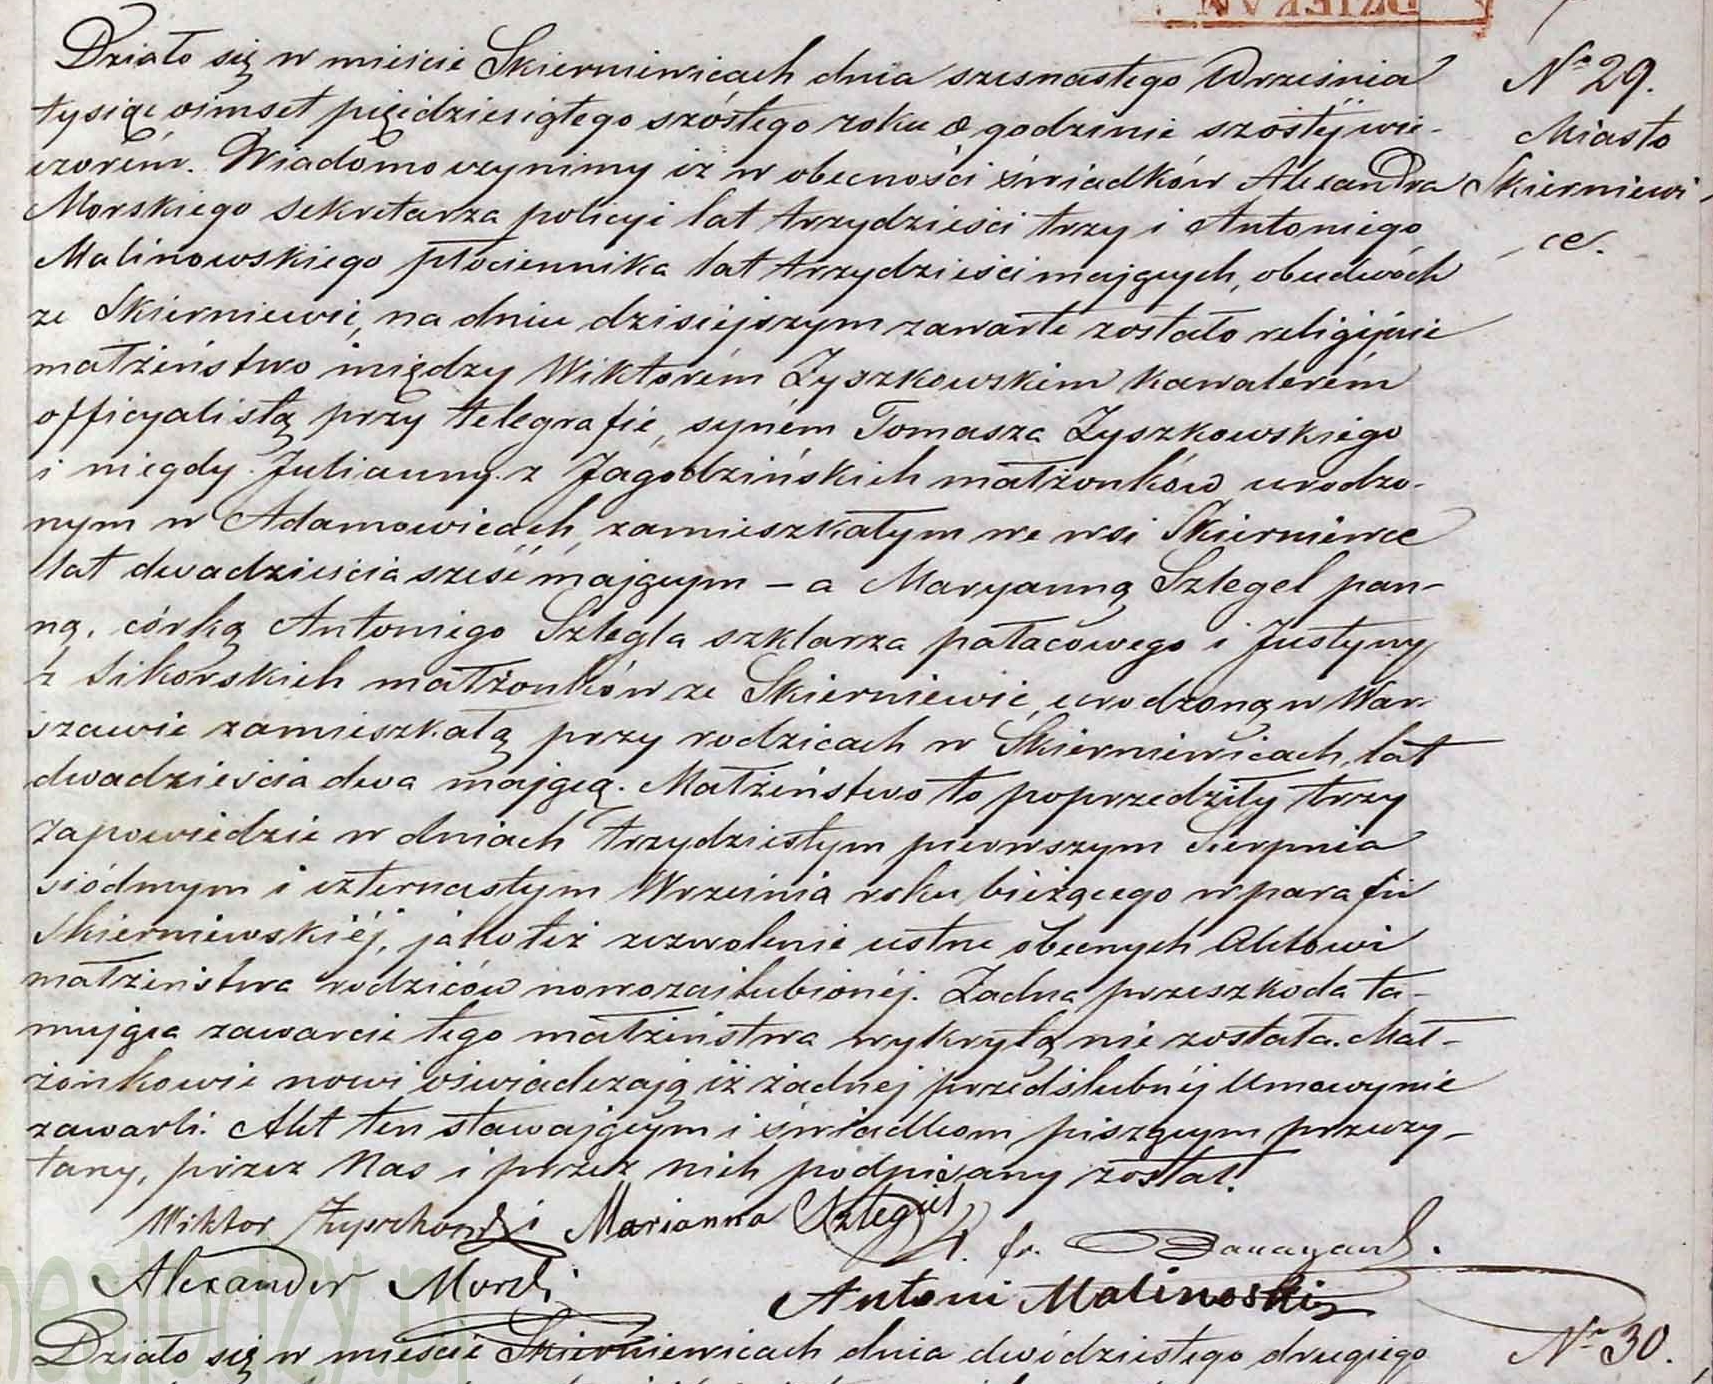 DZIEKAN
Działo się w mieście Skierniewicach dnia szesnastego Września
tysiąc ośmset pięćdziesiątego szóstego roku o godzinie szóstéj wie-
czorém. Wiadomo czynimy iż w obecności świadków Alexandra
Morskiego sekretarza policyi lat trzydzieści trzy i Antoniego
Malinowskiego płóciennika lat trzydzieści mających, obudwóch
ze Skierniewic, na dniu dzisiejszym zawarte zostało religijne
małżeństwo między Wiktorém Zyszkowskim kawalerém
officyalistą przy telegrafie, syném Tomasza Zyszkowskiego
i niegdy Julianny z Jagodzińskich małżonków urodzo-
nym w Adamowicach, zamieszkałym we wsi Skierniewce
lat dwadzieścia sześć mającym – a Maryanną Sztegel pan-
ną, córką Antoniego Sztegla szklarza pałacowego i Justyny
z Sikorskich małżonków ze Skierniewic, urodzoną w War-
szawie zamieszkałą przy rodzicach w Skierniewicach, lat
dwadzieścia dwa mającą. Małżeństwo to poprzedziły trzy
zapowiedzie w dniach trzydziestym pierwszym Sierpnia
siódmym i czternastym Września roku bieżącego w parafii
Skierniewskiéj, jako też zezwolenie ustne obecnych Aktowi
małżeństwa rodziców nowozaślubionéj. Żadna przeszkoda ta-
mująca zawarcie tego małżeństwa wykrytą nie została. Mał-
żonkowie nowi oświadczają iż żadnej przedślubnéj umowy nie
zawarli. Akt ten stawającym i świadkom piszącym przeczy-
tany, przez Nas i przez nich podpisany został.
Wiktor Marianna Sztegiel
Alexander Morski
Antoni Malinoski
Działo się w mieście Skierniewicach dnia dwódziestego drugiego
No 29.
Miasto
Skierniewi-
ce.
No 30.